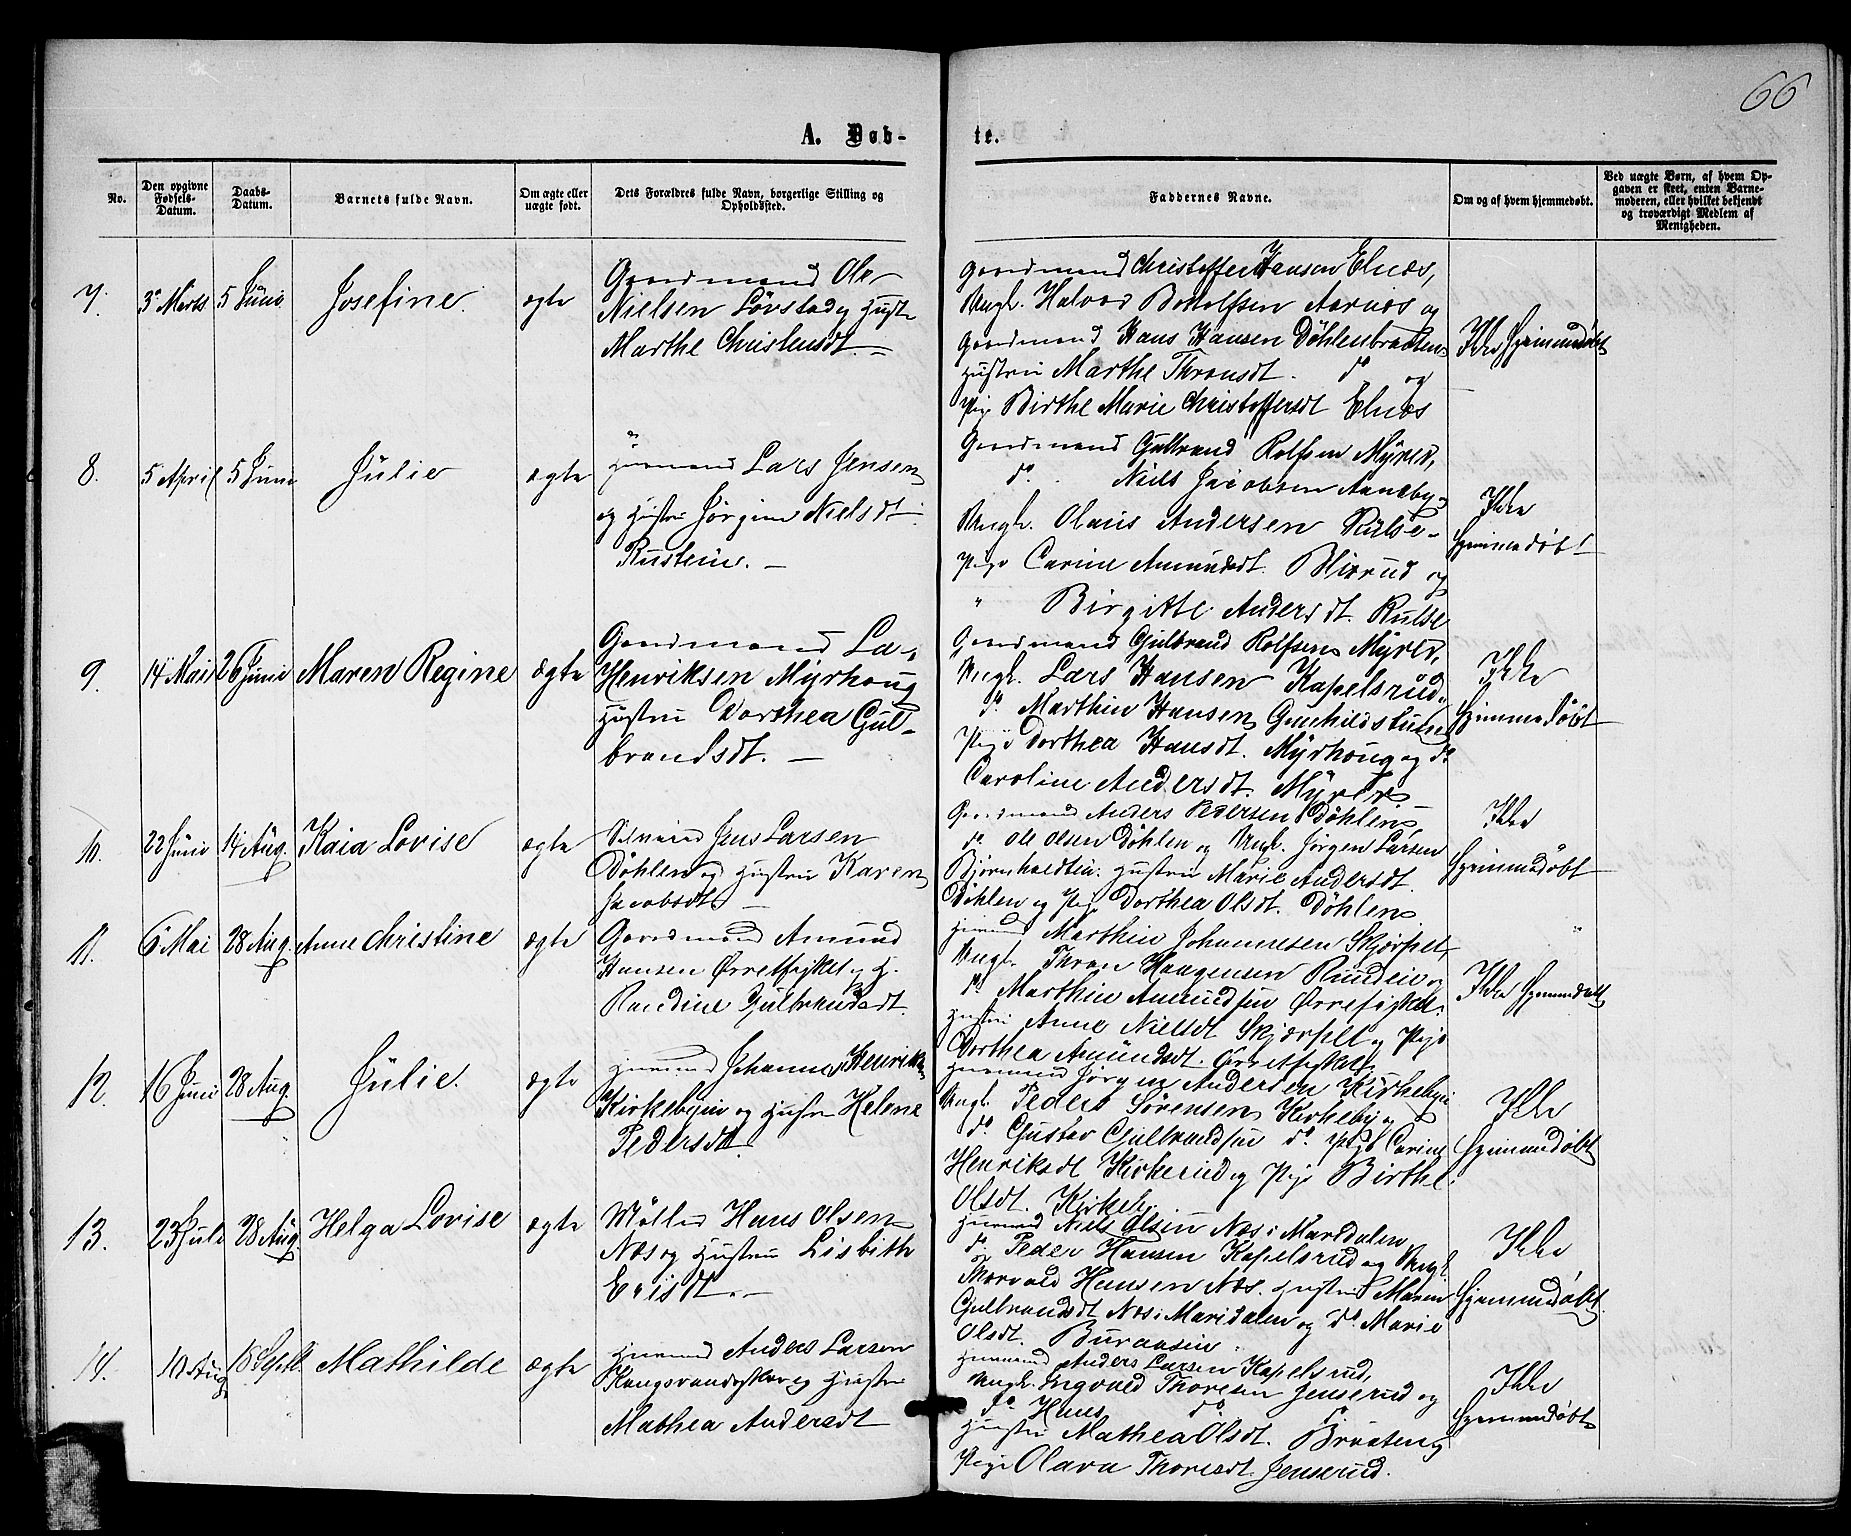 66
A. Døb-
te.
No.
Den opgivne Fødsels-Datum.
Daabs-Datum.
Barnets fulde Navn.
Om ægte eller uægte født.
Dets Forældres fulde Navn, borgerlige Stilling og Opholdssted.
Faddernes Navne.
Om og af hvem hjemmedøbt.
Ved uægte Børn, af hvem Opgaven er skeet, enten Barnemoderen, eller hvilket bekjendt og troværdigt Medlem af Menigheden.
7. 3 Marts 5 Juni Josefine. ægte
Gaardmand Ole
Nielsen Løvstad og Hustr
Marthe Christensdt.
Gaardmand Christoffer Hansen Elnæs,
Ungk. Halvor Bottolfsen Aarnæs og
Gaardmand Hans Hansen Döhlenbraaten
Hustru Marthe Thronsdt. do og
Pige Birthe Marie Christoffersdt Elnæs
Ikke Hjemmedøbt
8. 5 April 5 Juni Jülie ægte
Huusmand Lars Jensen
og Hustru Jørgine Nielsdt
Rustein.
Gaardmand Gulbrand Rolfsen Myrer,
do. Niels Jacobsen Aaneby og
Ungk. Olaus Andersen Rulse
Pige Carine Amundsdt. Blixrud og
" Birgitte Andersdt. Rulse
Ikke
Hjemmedøbt
9. 14 Mai 26 Juni Maren Regine ægte
Gaardmand La
Henriksen Myrhoug
Hustru Dorthea Gul-
brandsdt.
Gaardmand Gulbrand Rolfsen Myrer,
Ungk. Lars Hansen Kapelsrud
do. Marthin Hansen Gunhildstuen
Pige Dorthea Hansdt. Myrhoug og do
Caroline Andersdt. Myrer
Ikke
Hjemmedøbt
10. 22 Juni 14 Aug. Kaia Lovise ægte
Jens Larsen
Döhlen og Hustru Karen
Jacobsdt
Gaardmand Anders Pedersen Döhlen,
do. Ole Olsen Döhlen og Ungk. Jørgen Larsen
Bjørnholdtin. Hustru Marie Andersdt.
Döhlen og Pige Dorthea Olsdt. Döhlen
Ikke
Hjemmedøbt
11. 6 Mai 28 Aug. Anne Christine ægte
Gaardmand Amund
Hansen Ørretfisket og H.
Randine Gulbrandsdt.
Marthin Johannesen Skjærpet,
Ungk. Thron Haagensen Rundein og
do. Marthin Amundsen Ørrefisket.
Hustru Anne Nielsdt Skjærpet og Pige
Dorthea Amündsdt. Örretfisket
"
Ikke Hjemmedøbt
12. 16 Juni 28 Aug. Jülie. ægte
Huusmand Johannes Henriks.
Kirkebyein og Hustru Helene
Pedersdt.
Huusmand Jørgen Andersen Kirkebyin
Ungk. Peder Sørensen Kirkeby og
do. Gustav Gulbrandsen do. Pige Carine
Henriksdt Kirkerud og Pige Birthe
Olsdt. Kirkeby
Ikke
Hjemmedøbt
13. 23 Juli 28 Aug. Helga Lovise ægte
Møller Hans Olsen
Næs og Hustru Lisbith
Erisdt.
Huusmand Niels Olsen Næs i Maridalen
do. Peder Hansen Kapelsrud og Ungk.
Thorvald Hansen Næs. Hustru Maren
Gulbrandsdt Næs i Maridalen og do Marie
Olsdt. Buraasein.
Ikke
Hjemmedøbt
14. 10 Aug. 18 Septb. Mathilde ægte
Huusmand Anders Larsen
og Hustru
Mathea Andersdt
Huusmand Anders Larsen Kapelsrud,
Ungk. Ingvald Thoresen Jenserud og
do Hans do
Hustru Mathea Olsdt. Braaten og
Pige Olava Thoresdt Jenserud.
Ikke
Hjemmedøbt